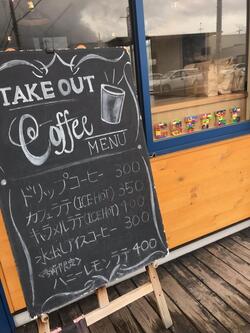 TAKE OUT
Coffee
MENU
ドリップコーヒー 300
カフェラテ(ICE HOT) 350
キャラメルラテ(ICE HOT) 400
アイスコーヒー 300
ハニーレモンラテ 400